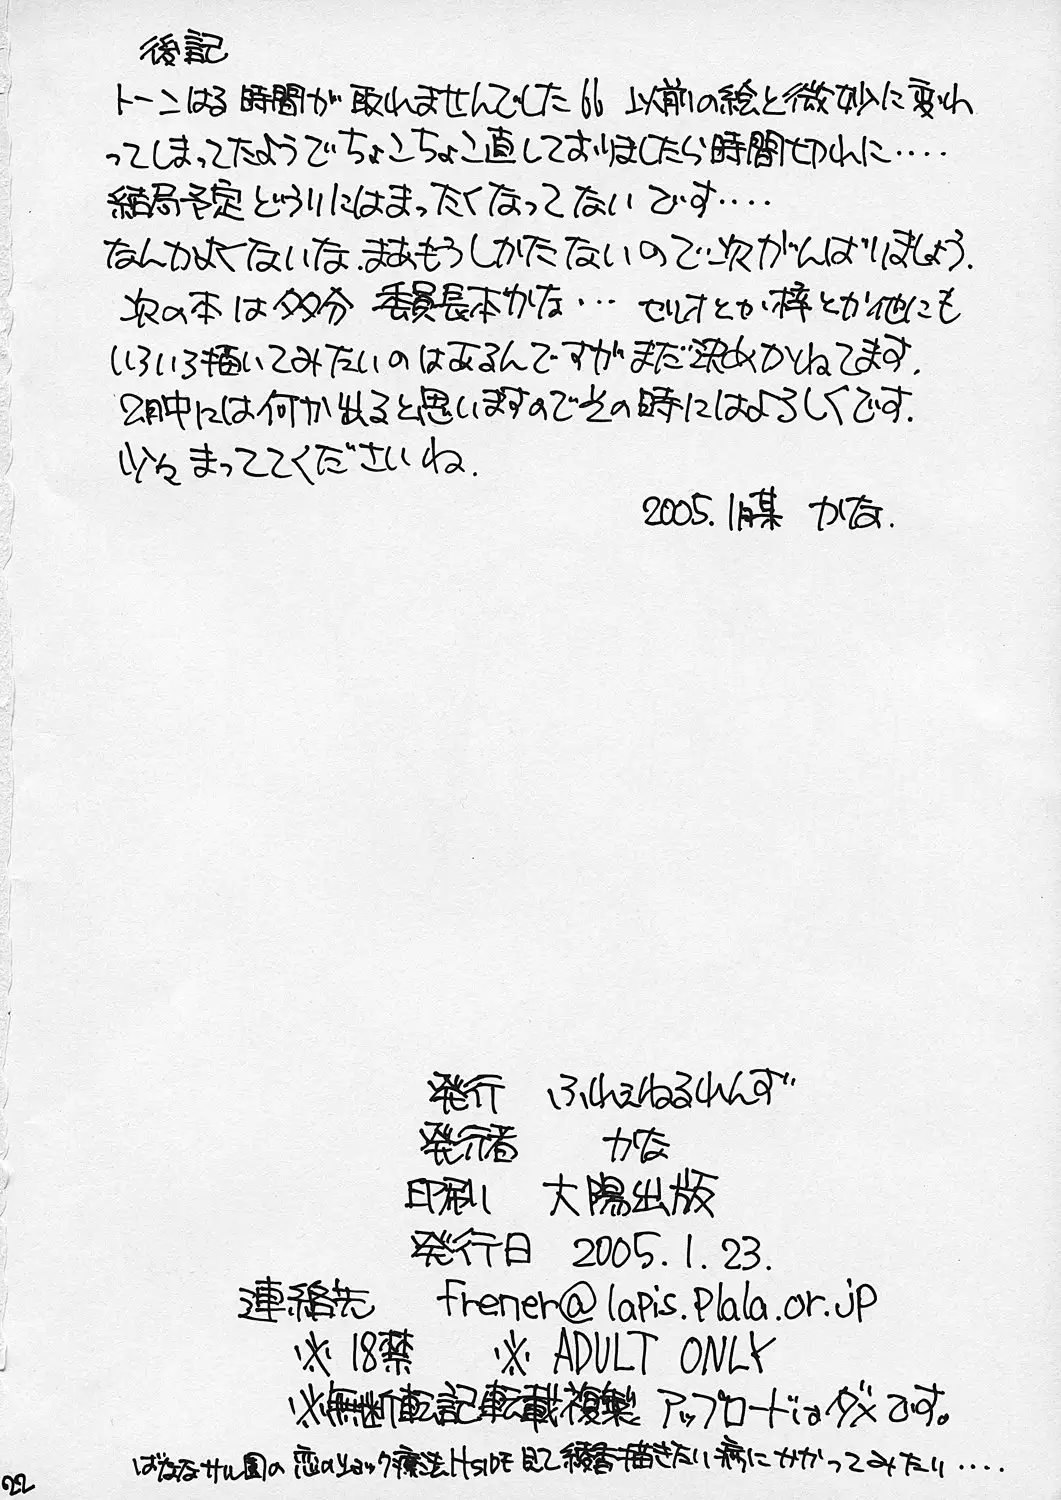 後記
トーンはる時間が取れませんでした 66 以前の絵と微妙に変わ
ってしまってたようでちょこちょこ直しておりましたら時間切れに・・・・
結局予定どうりにはまったくなってないです・・・・
なんかよくないな.まあもうしかたないので次がんばりましょう.
次の本は多分 委員長本かな・・・ セリオとか梓とか他にも
いろいろ描いてみたいのはあるんですがまだ決めかねてます.
2月中には何か出ると思いますのでその時にはよろしくです.
少々まっててくださいね.
2005.1月某 かな.
発行 ふれえねるれんず
発行者 かな
印刷 大陽出版
発行日 2005.1.23.
連絡先 frener@lapis.plala.or.jp
※18禁 ※ADULT ONLY
※無断転記転載複製 アップロードはダメです。
ばななサル園の恋のショック療法HSIDE見て綾香描きたい病にかかってみたり・・・・
22